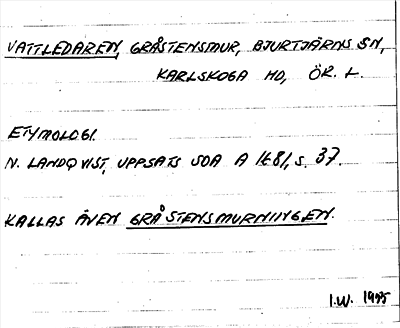 VATTLEDAREN, GRÅSTENSMUR, BJURTJÄRNS SN,
KARLSKOGA HD, ÖR. L.
ETYMOLOGI.
N. LANDQVIST, UPPSATS SOA A 1681, S. 37.
KALLAS ÄVEN GRÅSTENSMURNINGEN.
I.W. 1975